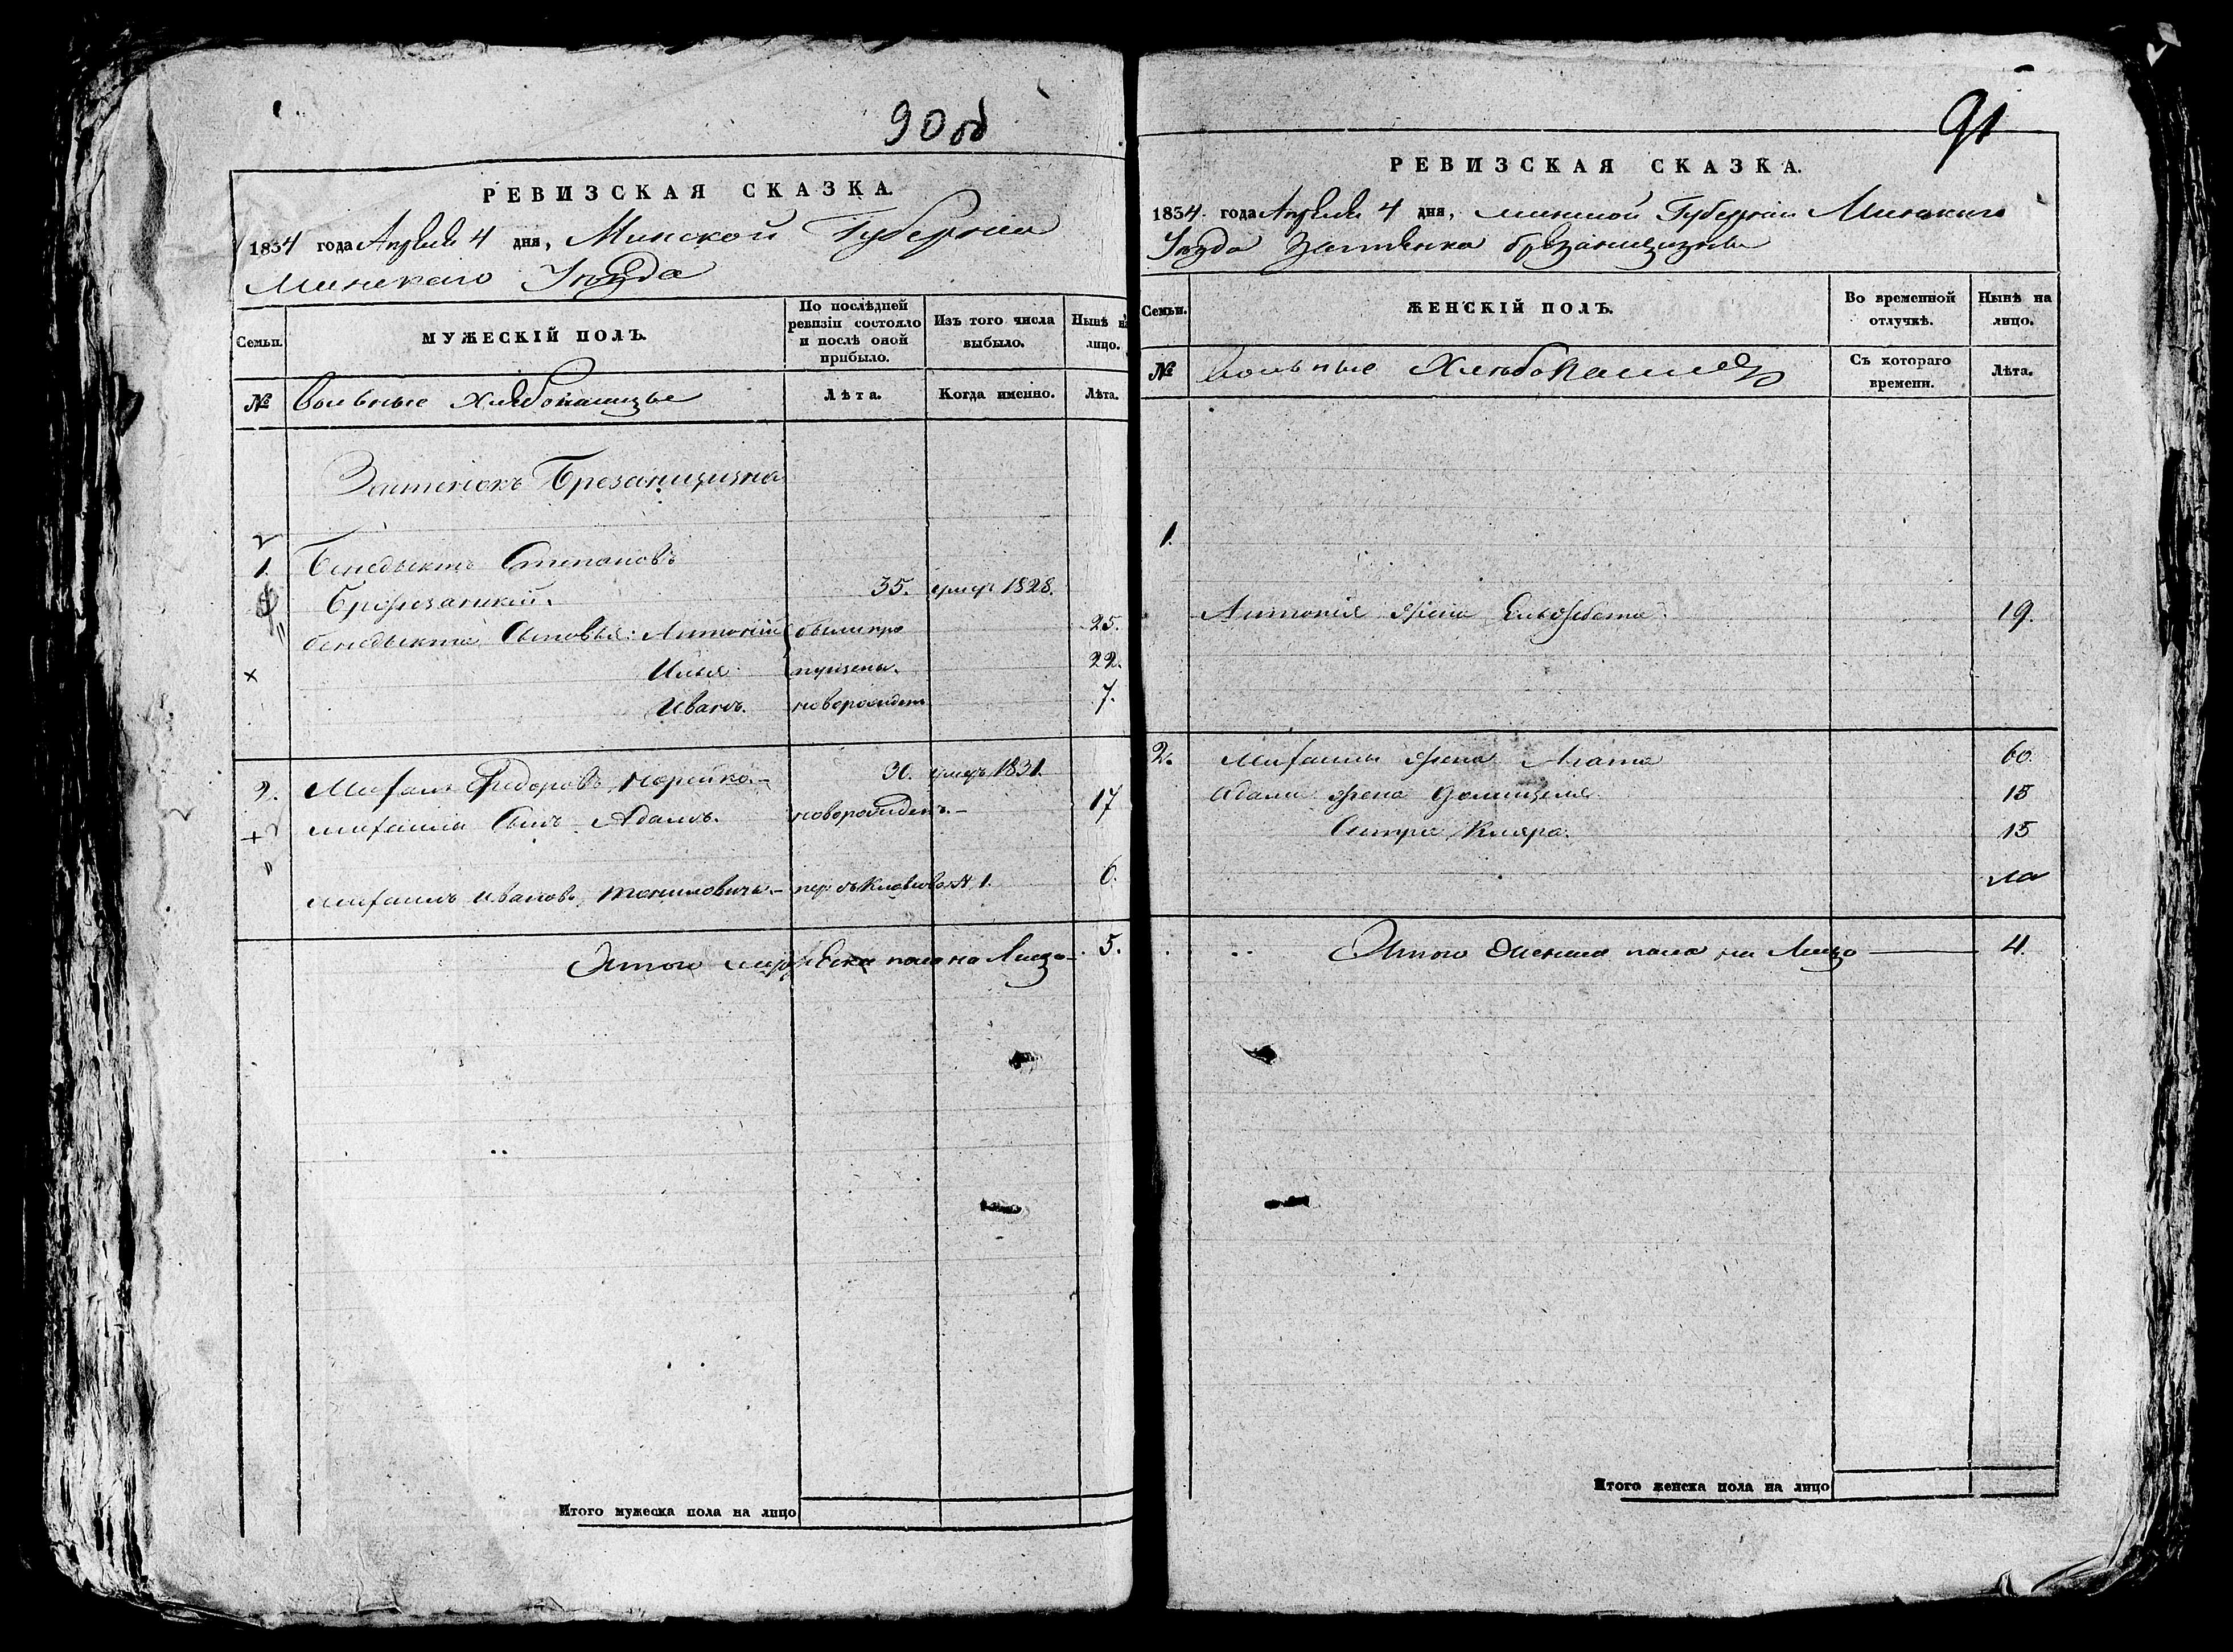 90 об
РЕВИЗСКАЯ СКАЗКА.
1834 года Апреля 4 дня, Минской Губерніи
Минскаго Уѣзда
Семьи.
МУЖЕСКІЙ ПОЛЪ.
По послѣдней ревизіи состояло и послѣ оной прибыло.
Изъ того числа выбыло.
Нынѣ на лицо.
№
Вольные Хлѣбопашцы
Лѣта.
Когда именно.
Лѣта.
Застенокъ Брезанщизна
1. Бенедыктъ Степановъ
35. умеръ 1828.
Бенедыкта Сыновья: Антоній были про 25.
Илья пущены. 22.
Иванъ. новорожденъ 7.
2. Михалъ Федоровъ Норейко. 30. умеръ 1831.
Михайлы Сынъ Адамъ. новорожденъ. 17
Михайлъ Ивановъ 6.
Итого мужеска пола на Лицо 5.
Итого мужеска пола на лицо
91
РЕВИЗСКАЯ СКАЗКА.
1834 года Апреля 4 дня, Минской Губерніи Минскаго
Уѣзда Застенка Брезанщизны
Семьи.
ЖЕНСКІЙ ПОЛЪ.
Во временной отлучкѣ.
Нынѣ на лицо.
№
Вольные Хлѣбопашцы
Съ котораго времени.
Лѣта.
1.
Антонія жена Ельжбета 19.
2. Михайлы жена Агата 60.
Адама жена Доминцеля 15
Сестра Кляра. 15
Итого Женска пола на Лицо 4.
Итого женска пола на лицо